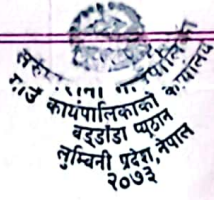 गाउँ कार्यपालिकाको कार्यालय
बड्डाँडा प्यूठान
लुम्बिनी प्रदेश, नेपाल
२०७३